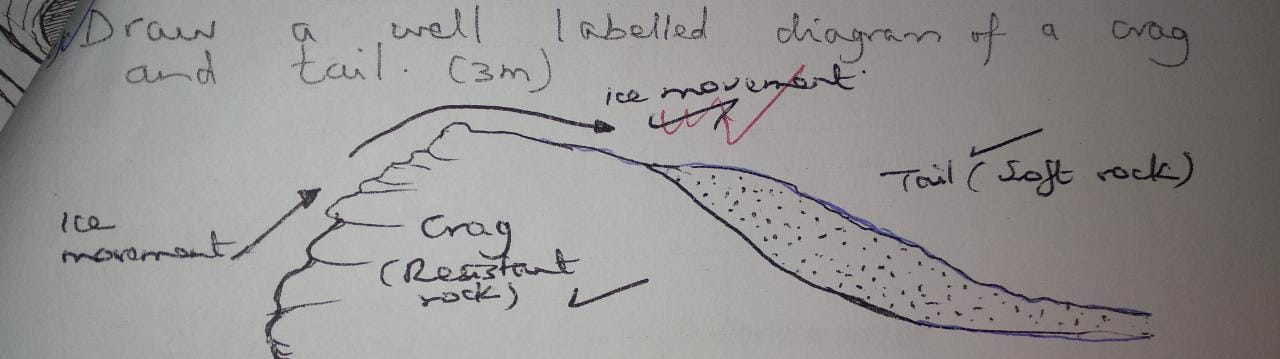 Draw a well labelled diagram of a crag
and tail. (3m)
ice movement
Tail (Soft rock)
Ice
movement
Crag
(Resistant
rock)